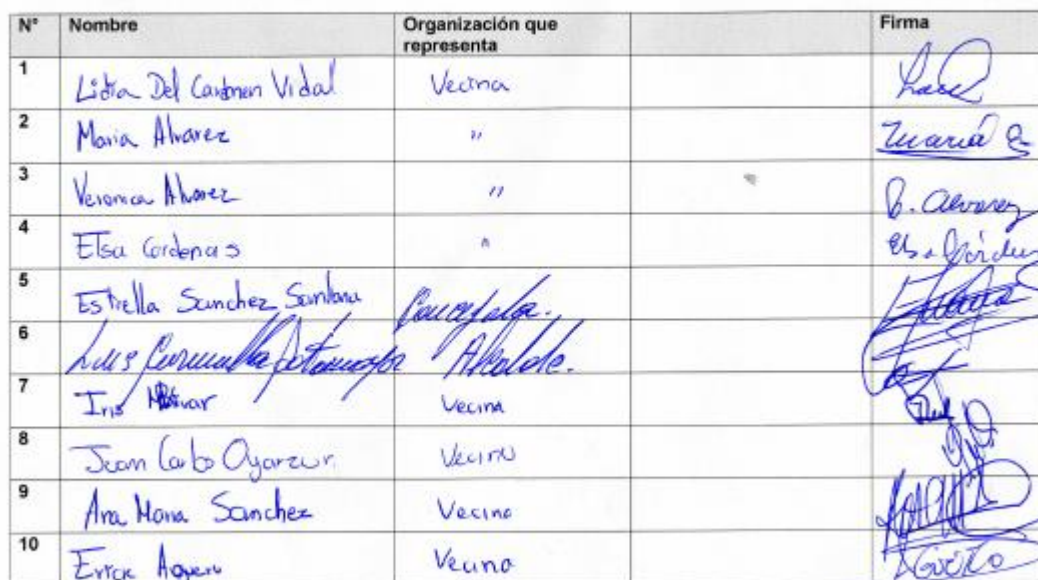 N° Nombre Organización que representa Firma
1 Lidia Del Carmen Vidal Vecina
2 Maria Alvarez " Maria
3 Veronica Alvarez " Alvarez
4 Elsa Cardenas "
5 Estrella Sanchez Santana Concejala.
6 Luis Alcalde.
7 Iris Vecina
8 Juan Carlo Oyarzun Vecino
9 Ana Maria Sanchez Vecina
10 Vecino